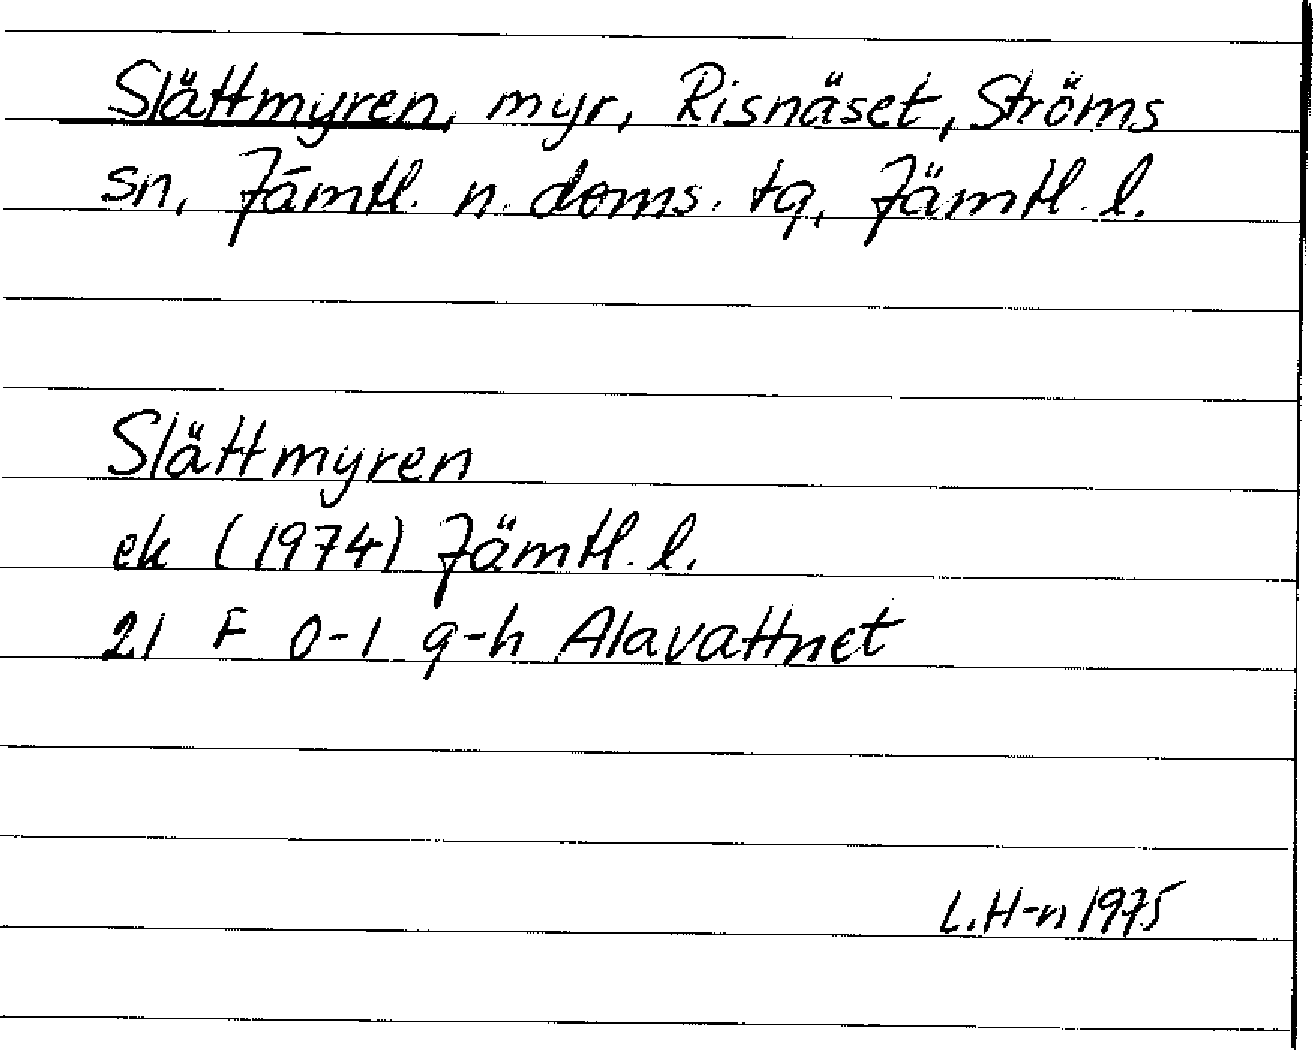 Slättmyren, myr, Risnäset, Ströms
sn, Jämtl. n. doms. tg, Jämtl. l.
Slättmyren
ek (1974) Jämtl. l.
21 F 0-1 g-h Alavattnet
L.H-n 1975